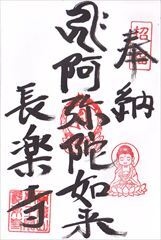 奉納
阿弥陀如来
長楽寺